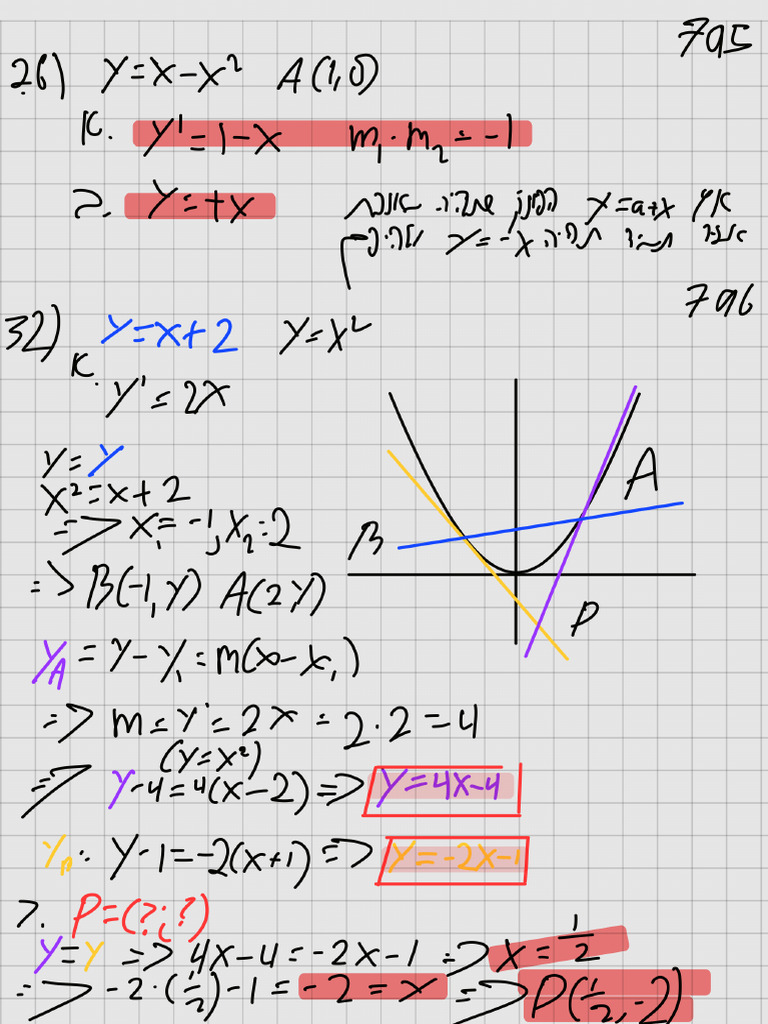 795
26) y=x-x² A(1,0)
א. y'=1-x m₁·m₂=-1
ב. y=+x
y=a+x
y=-x
796
32) y=x+2 y=x²
א.
y'=2x
y=y
x²=x+2
=> x₁=-1, x₂=2
=> B(-1,y) A(2,y)
B
A
P
y_A = y-y₁=m(x-x₁)
=> m=y'=2x=2·2=4
(y=x²)
=> y-4=4(x-2) => y=4x-4
y-1=-2(x+1) => y=-2x-1
ב. P=(?;?)
y=y => 4x-4=-2x-1 => x=1/2
=> -2·(1/2)-1=-2=x => P(1/2,-2)